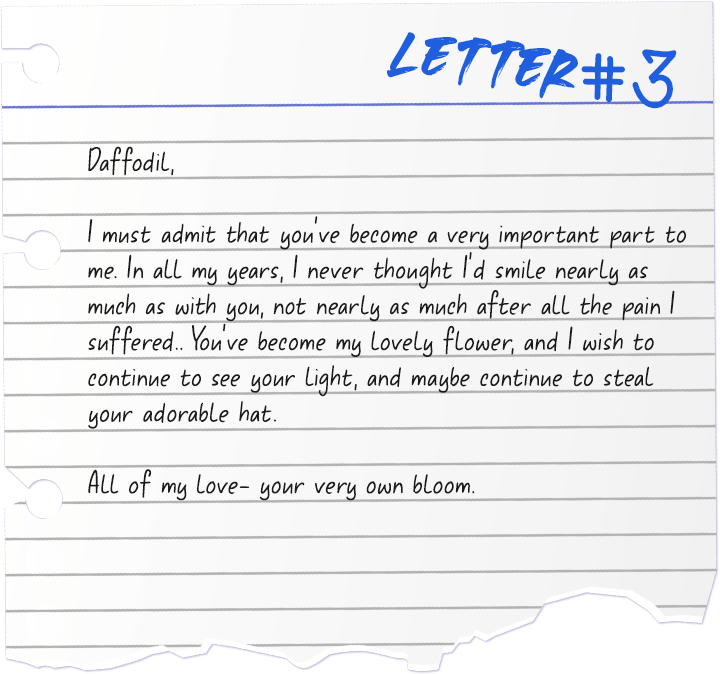 LETTER#3
Daffodil,
I must admit that you've become a very important part to
me. In all my years, I never thought I'd smile nearly as
much as with you, not nearly as much after all the pain I
suffered.. You've become my lovely flower, and I wish to
continue to see your light, and maybe continue to steal
your adorable hat.
All of my love- your very own bloom.